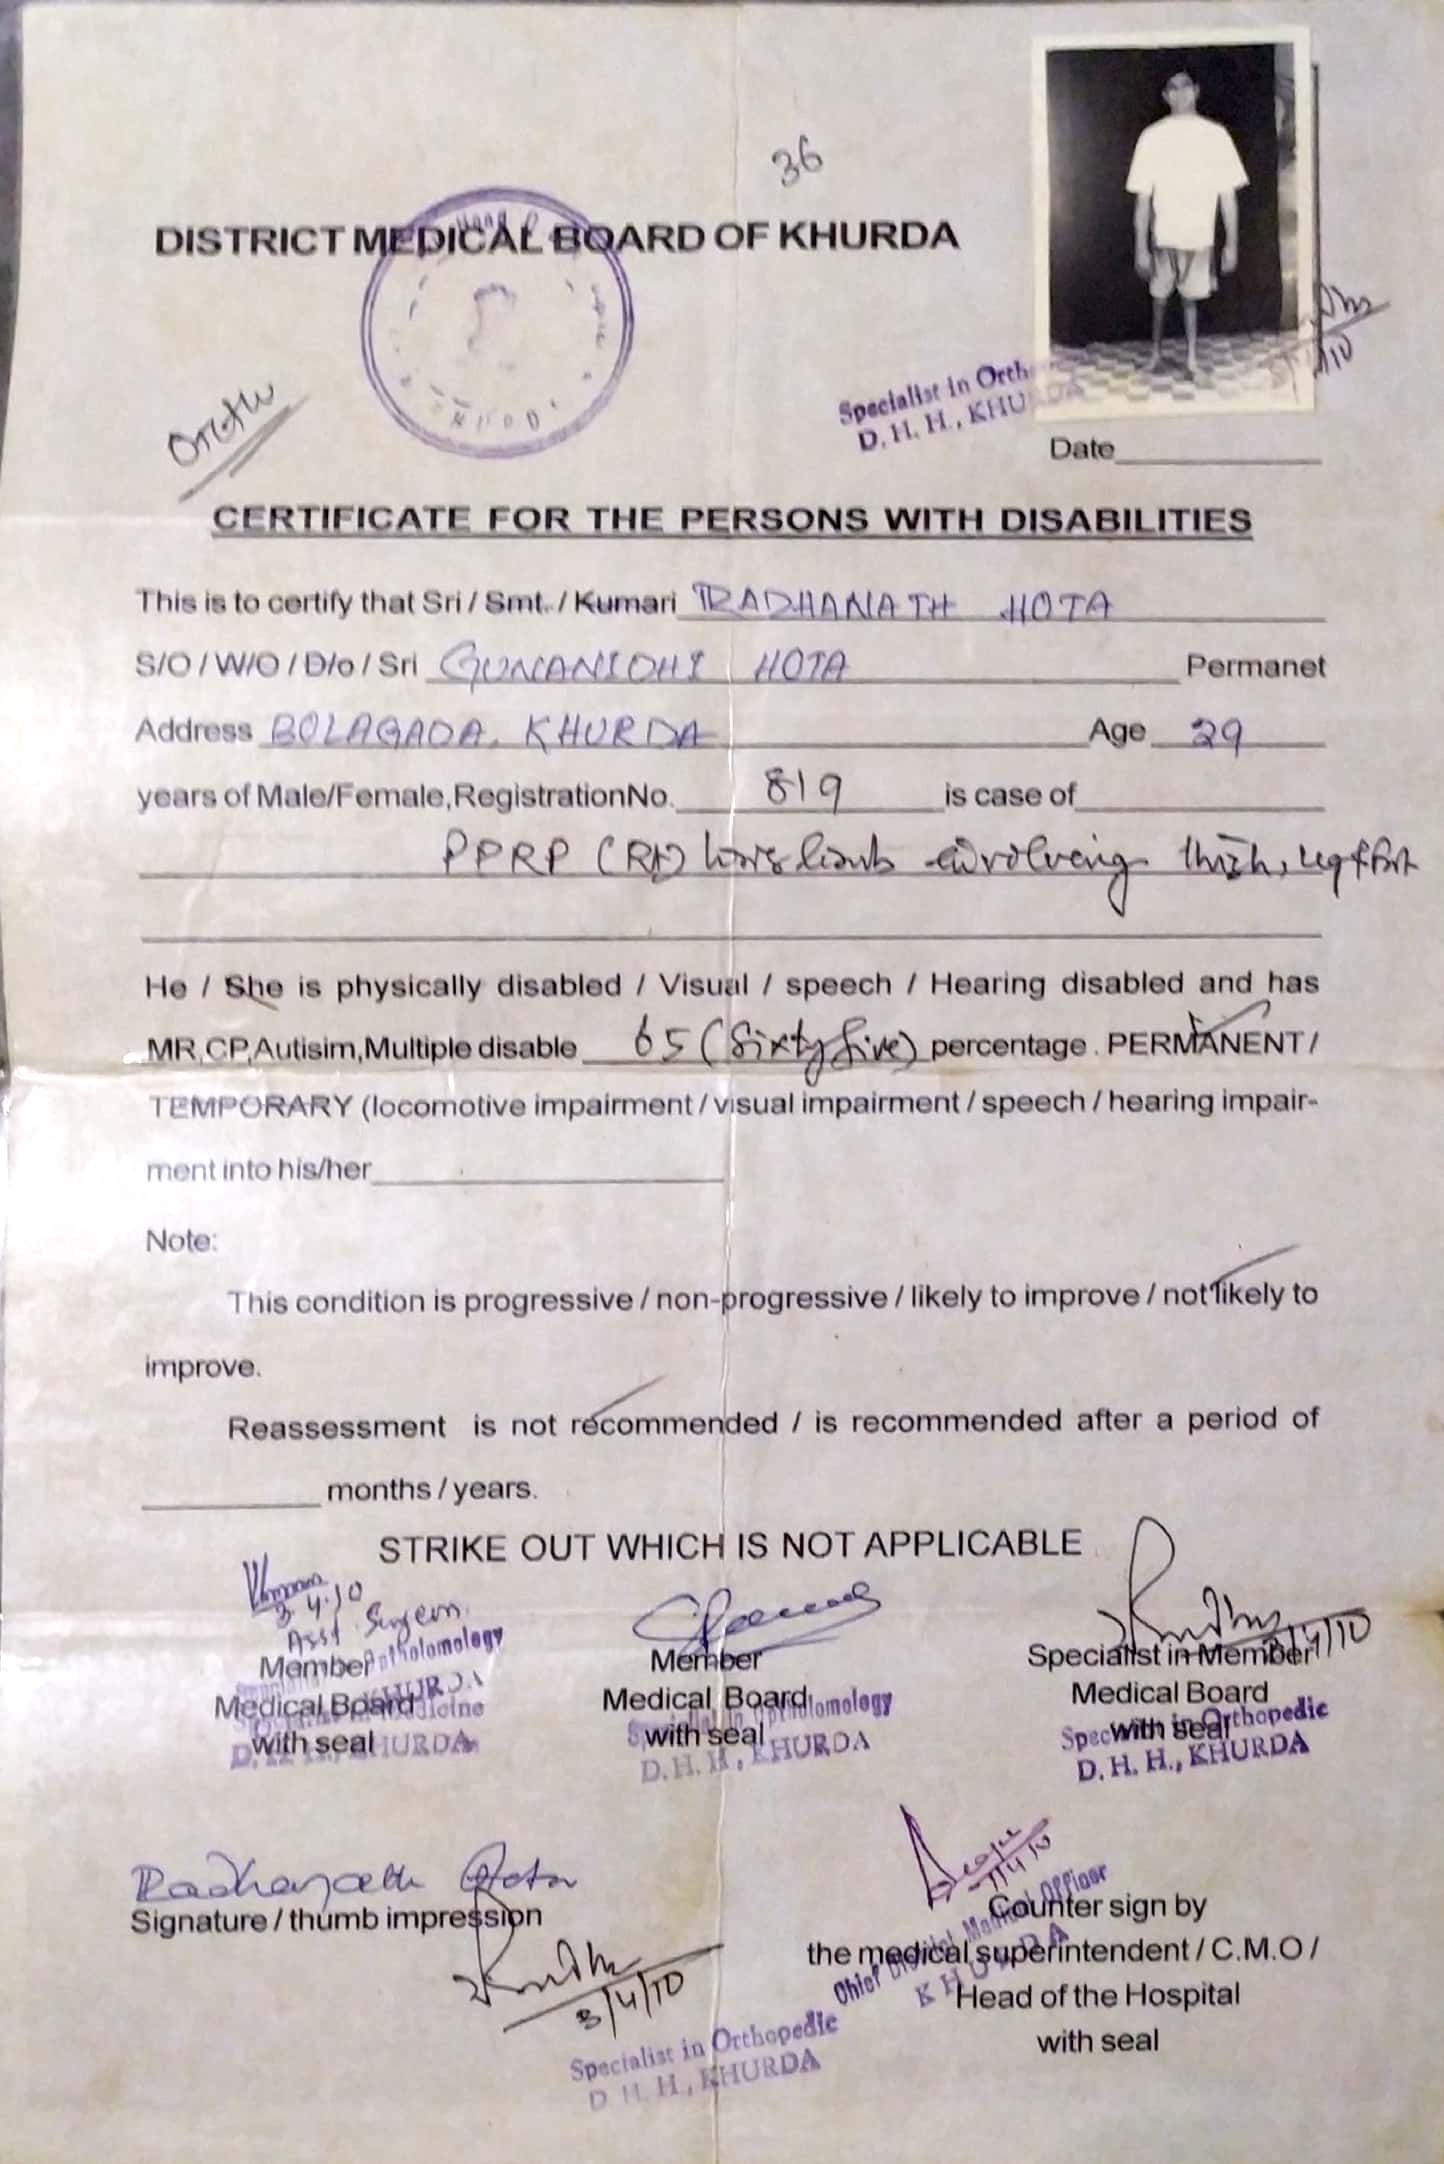 36
DISTRICT MEDICAL BOARD OF KHURDA
Specialist in Orth
D. H. H., KHURDA
Date
Ortho
CERTIFICATE FOR THE PERSONS WITH DISABILITIES
This is to certify that Sri / Smt. / Kumari RADHANATH HOTA
S/O / W/O / D/o / Sri GUNANIDHI HOTA Permanet
Address BOLAGADA, KHURDA Age 29
years of Male/Female, Registration No. 819 is case of
PPRP (Rt) lower limb involving thigh, leg & foot
He / She is physically disabled / Visual / speech / Hearing disabled and has
MR, CP, Autisim, Multiple disable 65 (Sixty five) percentage. PERMANENT /
TEMPORARY (locomotive impairment / visual impairment / speech / hearing impair-
ment into his/her
Note:
This condition is progressive / non-progressive / likely to improve / not likely to
improve.
Reassessment is not recommended / is recommended after a period of
months / years.
STRIKE OUT WHICH IS NOT APPLICABLE
3.4.10
Asst Surgeon
Member Member Specialist in Member 3/4/10
Medical Board Medical Board Medical Board
with seal with seal with seal
D. H. H., KHURDA
Specialist in Opthalomology
D. H. H., KHURDA
Specialist in Orthopedic
D. H. H., KHURDA
Radhanath Hota
Signature / thumb impression
3/4/10
Specialist in Orthopedic
D. H. H., KHURDA
Chief District Medical Officer
KHURDA
Counter sign by
the medical superintendent / C.M.O /
Head of the Hospital
with seal